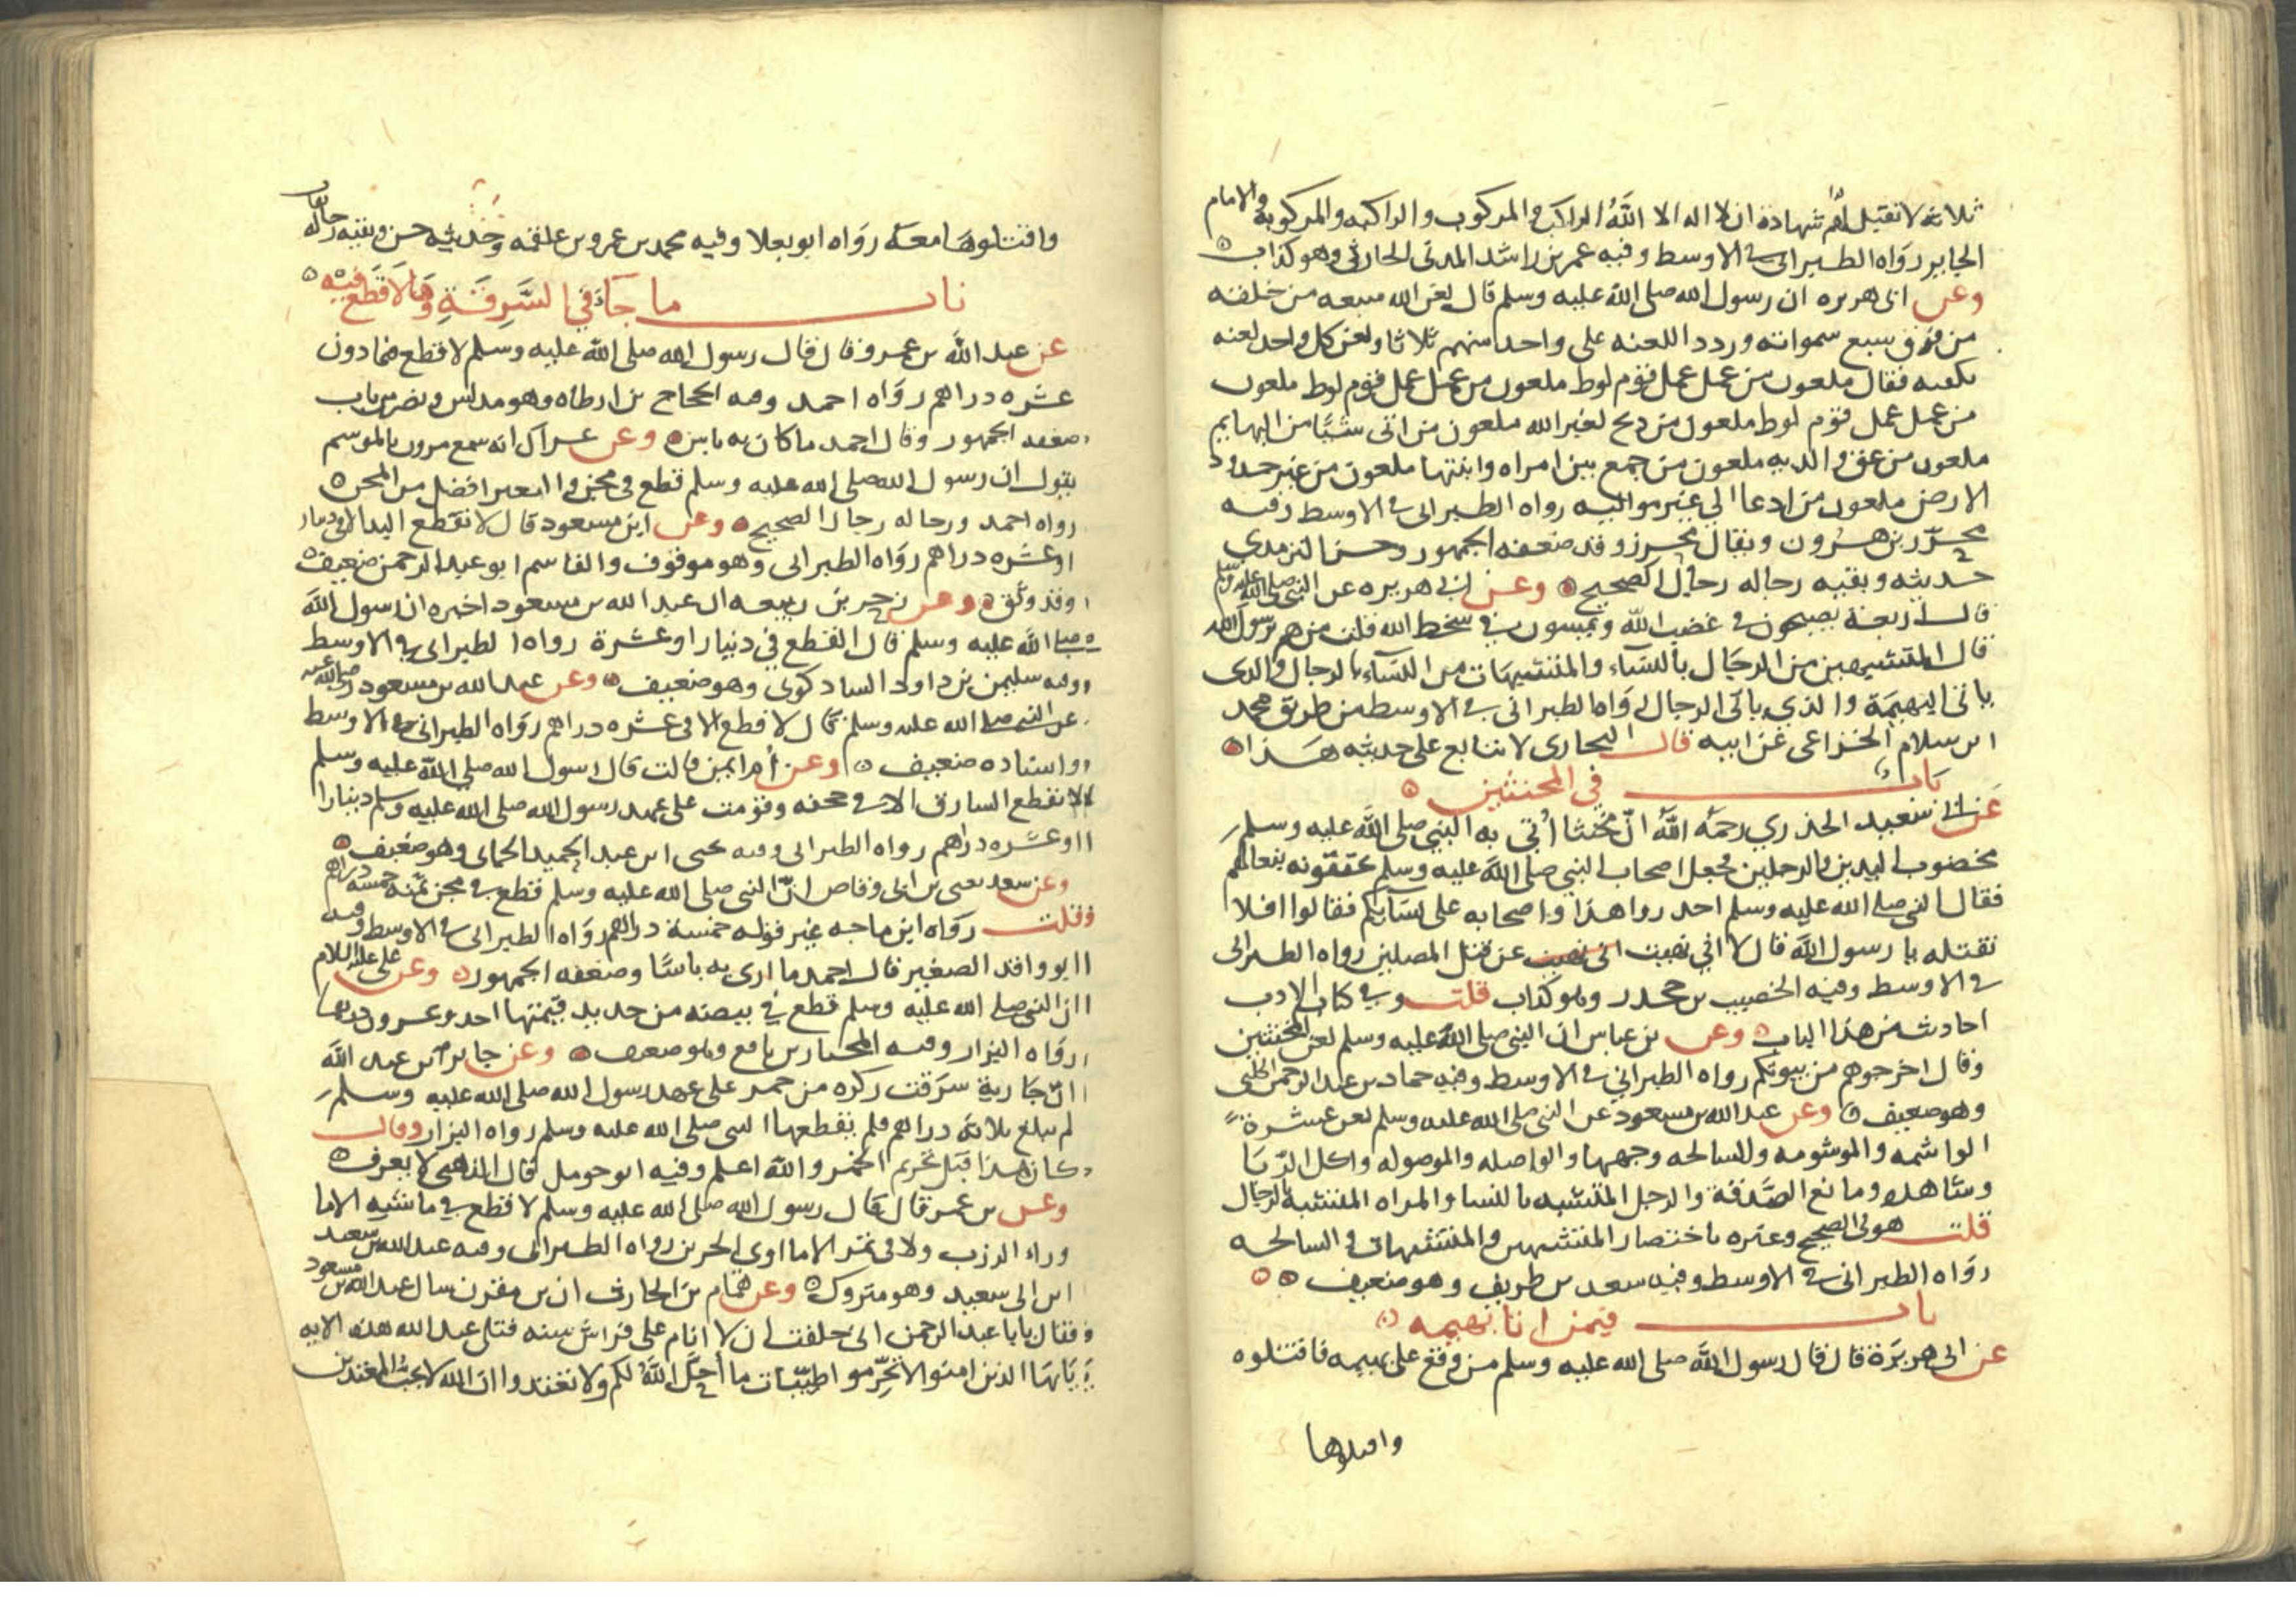 ثلاثة لا تقبل لهم شهادة ان لا اله الا الله الراكب والمركوب والراكبه والمركوبة والامام
الجاير رواه الطبراني في الاوسط وفيه عمر بن راشد المدني الحارثي وهو كذاب
وعن ابي هريره ان رسول الله صلى الله عليه وسلم قال لعن الله سبعه من خلقه
من فوق سبع سمواته وردد اللعنه على واحد منهم ثلاثا ولعن كل واحد لعنه
تكفيه فقال ملعون من عمل عمل قوم لوط ملعون من عمل عمل قوم لوط ملعون
من عمل عمل قوم لوط ملعون من ذبح لغير الله ملعون من اتى شيئا من البهايم
ملعون من عق والديه ملعون من جمع بين امراه وابنتها ملعون من غير حدود
الارض ملعون من ادعا الي غير مواليه رواه الطبراني في الاوسط وفيه
محرر بن هرون ويقال محرز وقد ضعفه الجمهور وحسن الترمذي
حديثه وبقيه رجاله رجال الصحيح وعن ابي هريره عن النبي صلى الله عليه وسلم
قال اربعة يصبحون في غضب الله ويمسون في سخط الله قلت من هم يرسول الله
قال المتشبهين من الرجال بالنساء والمتشبهات من النساء بالرجال والذي
ياتي البهيمة والذي ياتي الرجال رواه الطبراني في الاوسط من طريق محمد
ابن سلام الخزاعي عن ابيه قال البخاري لا يتابع على حديثه هذا
باب في المخنثين
عن ابي سعيد الخذري رحمه الله ان مخنثا اُتي به النبي صلى الله عليه وسلم
مخضوب اليدين والرجلين فجعل اصحاب النبي صلى الله عليه وسلم يخفقونه بنعالهم
فقال النبي صلى الله عليه وسلم احدروا هذا واصحابه على نسآئكم فقالوا افلا
نقتله يا رسول الله قال لا اني نهيت اني نهيت عن قتل المصلين رواه الطبراني
في الاوسط وفيه الخصيب بن جحدر وهو كذاب قلت وفي كتاب الادب
احاديث من هذا الباب وعن بن عباس ان النبي صلى الله عليه وسلم لعن المخنثين
وقال اخرجوهم من بيوتكم رواه الطبراني في الاوسط وفيه حماد بن عبد الرحمن الكلبي
وهو ضعيف وعن عبد الله بن مسعود عن النبي صلى الله عليه وسلم لعن عشرة
الواشمه والموشومه والسالخه وجهها والواصله والموصوله واكل الربا
وشاهده ومانع الصدقة والرجل المتشبه بالنسا والمراه المتشبه بالرجال
قلت هو في الصحيح وغيره باختصار المتشبهين والمتشبهات والسالخه
رواه الطبراني في الاوسط وفيه سعد بن طريف وهو ضعيف
باب فيمن اتا بهيمه
عن ابي هريرة قال قال رسول الله صلى الله عليه وسلم من وقع على بهيمه فاقتلوه
واقتلوها
واقتلوها معه رواه ابو يعلا وفيه محمد بن عمرو بن علقمه وحديثه حسن وبقيه رجاله ثقات
باب ما جاء في السرقة وما لا قطع فيه
عن عبد الله بن عمرو قال قال رسول الله صلى الله عليه وسلم لا قطع فيما دون
عشره دراهم رواه احمد وفيه الحجاج بن ارطاه وهو مدلس ونصر بن باب
ضعفه الجمهور وقال احمد ما كان به باس وعن عراك انه سمع مرون بالموسم
يقول ان رسول الله صلى الله عليه وسلم قطع في مجن والبعير افضل من المجن
رواه احمد ورجاله رجال الصحيح وعن ابن مسعود قال لا تقطع اليد الا في دينار
او عشره دراهم رواه الطبراني وهو موقوف والقاسم ابو عبد الرحمن ضعيف
وقد وثق وعن زحر بن ربيعه ان عبد الله بن مسعود اخبره ان رسول الله
صلى الله عليه وسلم قال القطع في دينار او عشرة رواه الطبراني في الاوسط
وفيه سليمن بن داود الشادكوني وهو ضعيف وعن عبد الله بن مسعود رضي الله عنه
عن النبي صلى الله عليه وسلم قال لا قطع الا في عشره دراهم رواه الطبراني في الاوسط
واسناده ضعيف وعن ام ايمن قالت قال رسول الله صلى الله عليه وسلم
لا تقطع السارق الا في جحفه وقومت على عهد رسول الله صلى الله عليه وسلم دينارا
او عشره دراهم رواه الطبراني وفيه يحيى ابن عبد الحميد الحماني وهو ضعيف
وعن سعد يعني بن ابي وقاص ان النبي صلى الله عليه وسلم قطع في مجن ثمنه خمسه دراهم
قلت رواه ابن ماجه غير قوله خمسة دراهم رواه الطبراني في الاوسط وفيه
ابو واقد الصغير قال احمد ما ارى به باسا وضعفه الجمهور وعن علي عليه السلام
ان النبي صلى الله عليه وسلم قطع في بيضه من حديد قيمتها احد وعشرون درهما
رواه البزار وفيه المختار بن نافع وهو ضعيف وعن جابر بن عبد الله
ان جارية سرقت ركوه من خمر على عهد رسول الله صلى الله عليه وسلم
لم تبلغ ثلاثة دراهم فلم يقطعها النبي صلى الله عليه وسلم رواه البزار وقال
كان هذا قبل تحريم الخمر والله اعلم وفيه ابو حومل قال الذهبي لا يعرف
وعن بن عمر قال قال رسول الله صلى الله عليه وسلم لا قطع في ماشيه الا ما
وراء الزرب ولا في تمر الا ما اوى الجرين رواه الطبراني وفيه عبد الله بن سعيد
ابن ابي سعيد وهو متروك وعن همام بن الحارث ان بن مقرن سال عبد الله بن مسعود
فقال يابا عبد الرحمن اني حلفت ان لا انام على فراش سنه فتلى عبد الله هذه الايه
يايها الذين امنوا لا تحرموا طيبات ما احل الله لكم ولا تعتدوا ان الله لا يحب المعتدين